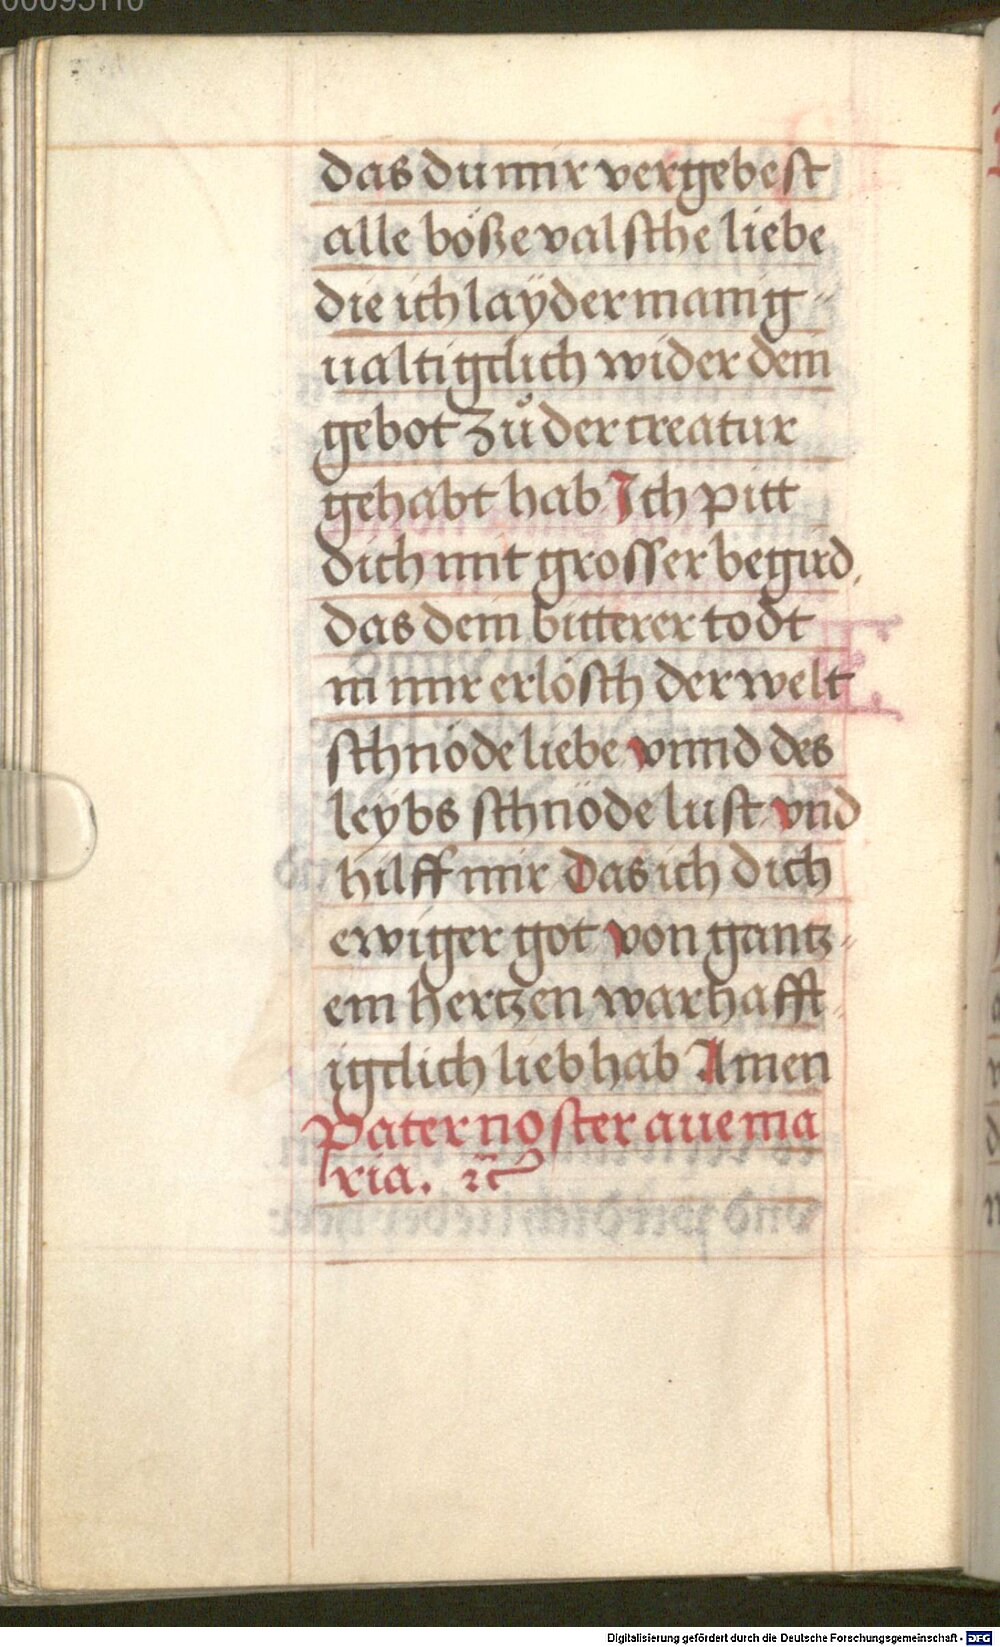 00095110
das du mir vergebest
alle böße valsche liebe
die ich laÿder manig-
ualtigclich wider dein
gebot zů der creatur
gehabt hab Ich pitt
dich mit grosser begird,
das dein bitterer todt
in mir erlösch der welt
schnöde liebe vnnd des
leÿbs schnöde lust vnd
hilff mir Das ich dich
ewiger got von gantz-
em hertzen warhafft-
igclich lieb hab Amen
Pater noster aue ma
ria. ⁊c
Digitalisierung gefördert durch die Deutsche Forschungsgemeinschaft - DFG